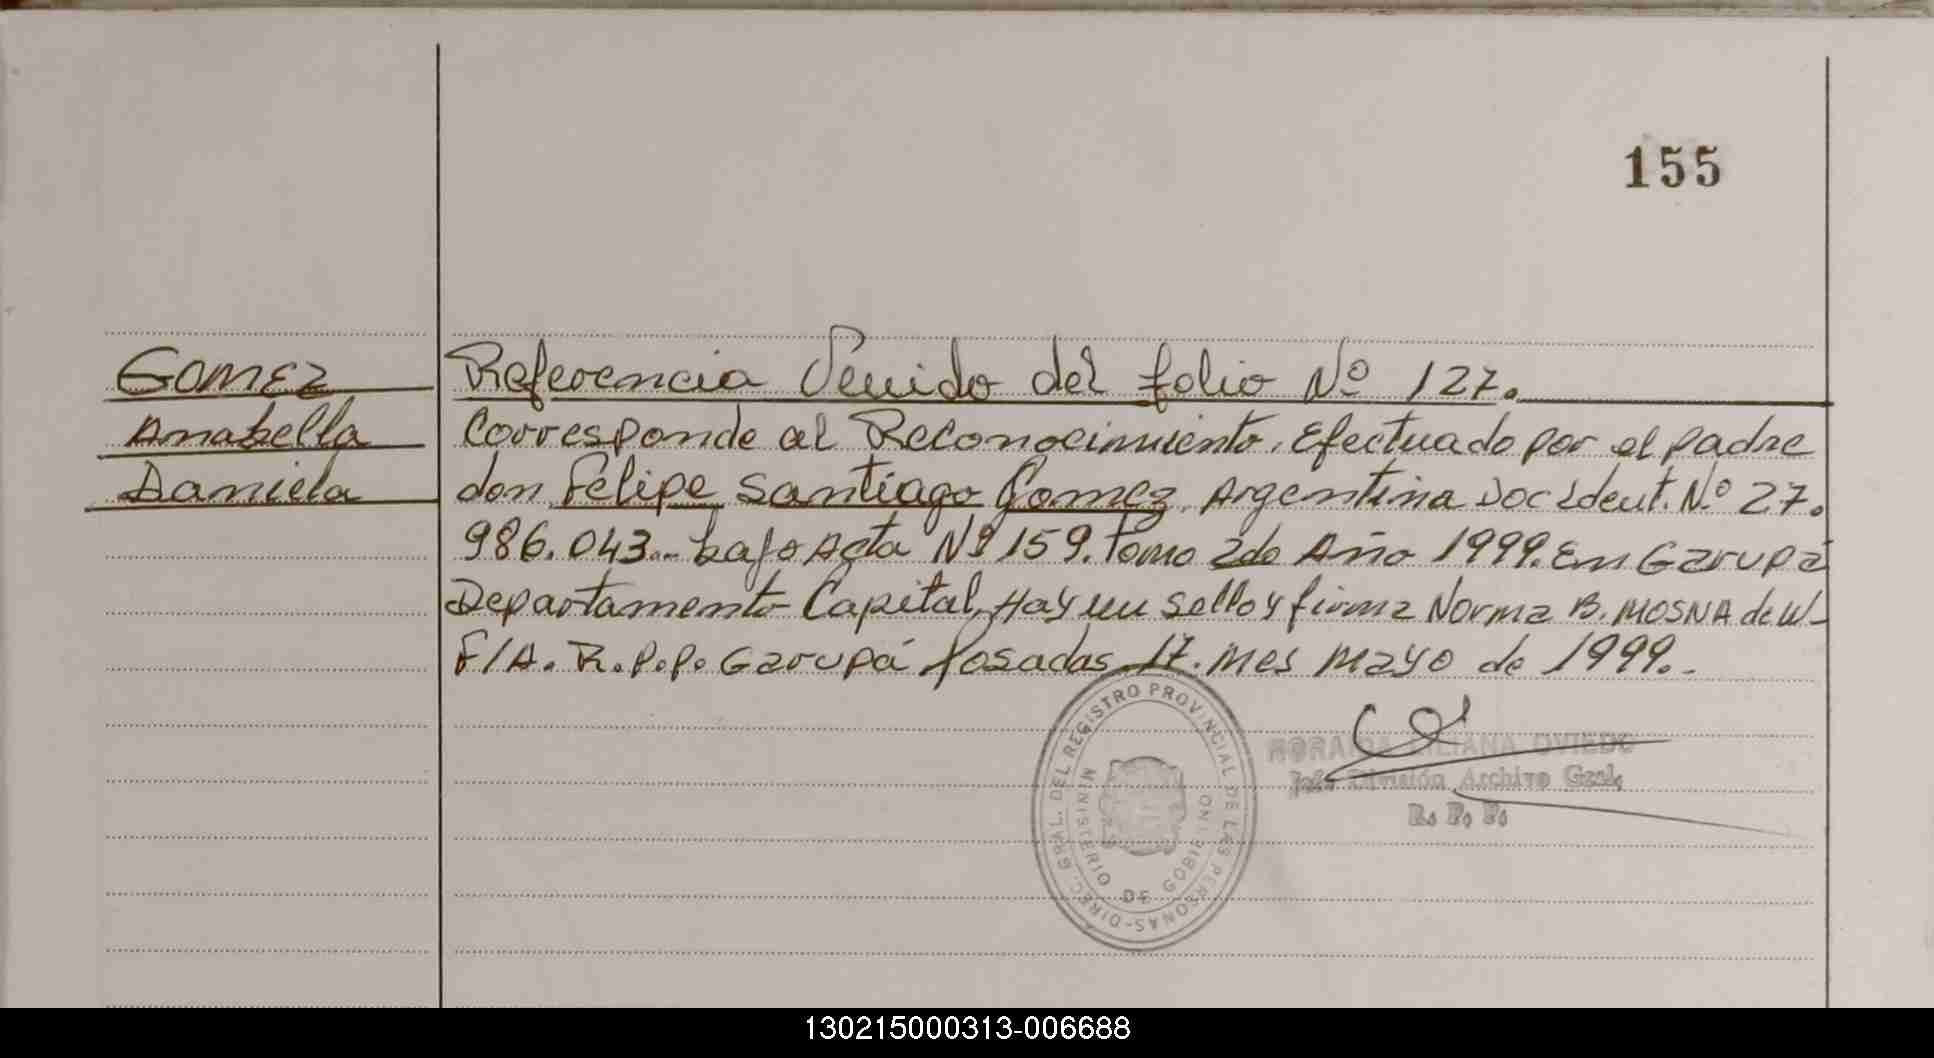 155
Gomez
Anabella
Daniela
Referencia Venido del folio Nº 127.
Corresponde al Reconocimiento. Efectuado por el padre
don Felipe Santiago Gomez. Argentina Doc ident. Nº 27.
986.043.- bajo Acta Nº 159. Tomo 2do Año 1999. En Garupá
Departamento Capital, Hay un sello y firma Norma B. MOSNA de W-
F/A. R.P.P. Garupá Posadas 17. mes mayo de 1999.-
DIREC. GRAL. DEL REGISTRO PROVINCIAL DE LAS PERSONAS-
MINISTERIO DE GOBIERNO
LILIANA OVIEDO
Jefe División Archivo Gral.
R. P. P.
130215000313-006688